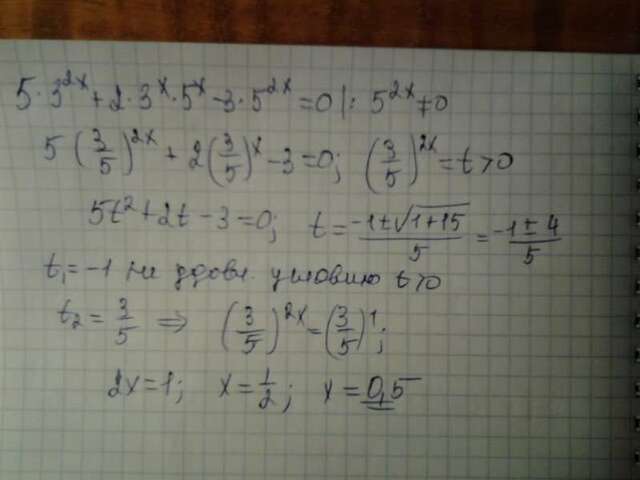 5·3^{2x}+2·3^x·5^x-3·5^{2x}=0 |: 5^{2x}≠0
5(3/5)^{2x}+2(3/5)^x-3=0; (3/5)^{2x}=t>0
5t²+2t-3=0; t=(-1±√(1+15))/5=(-1±4)/5
t₁=-1 не удовл. условию t>0
t₂=3/5 ⇒ (3/5)^{2x}=(3/5)^1;
2x=1; x=1/2; x=0,5